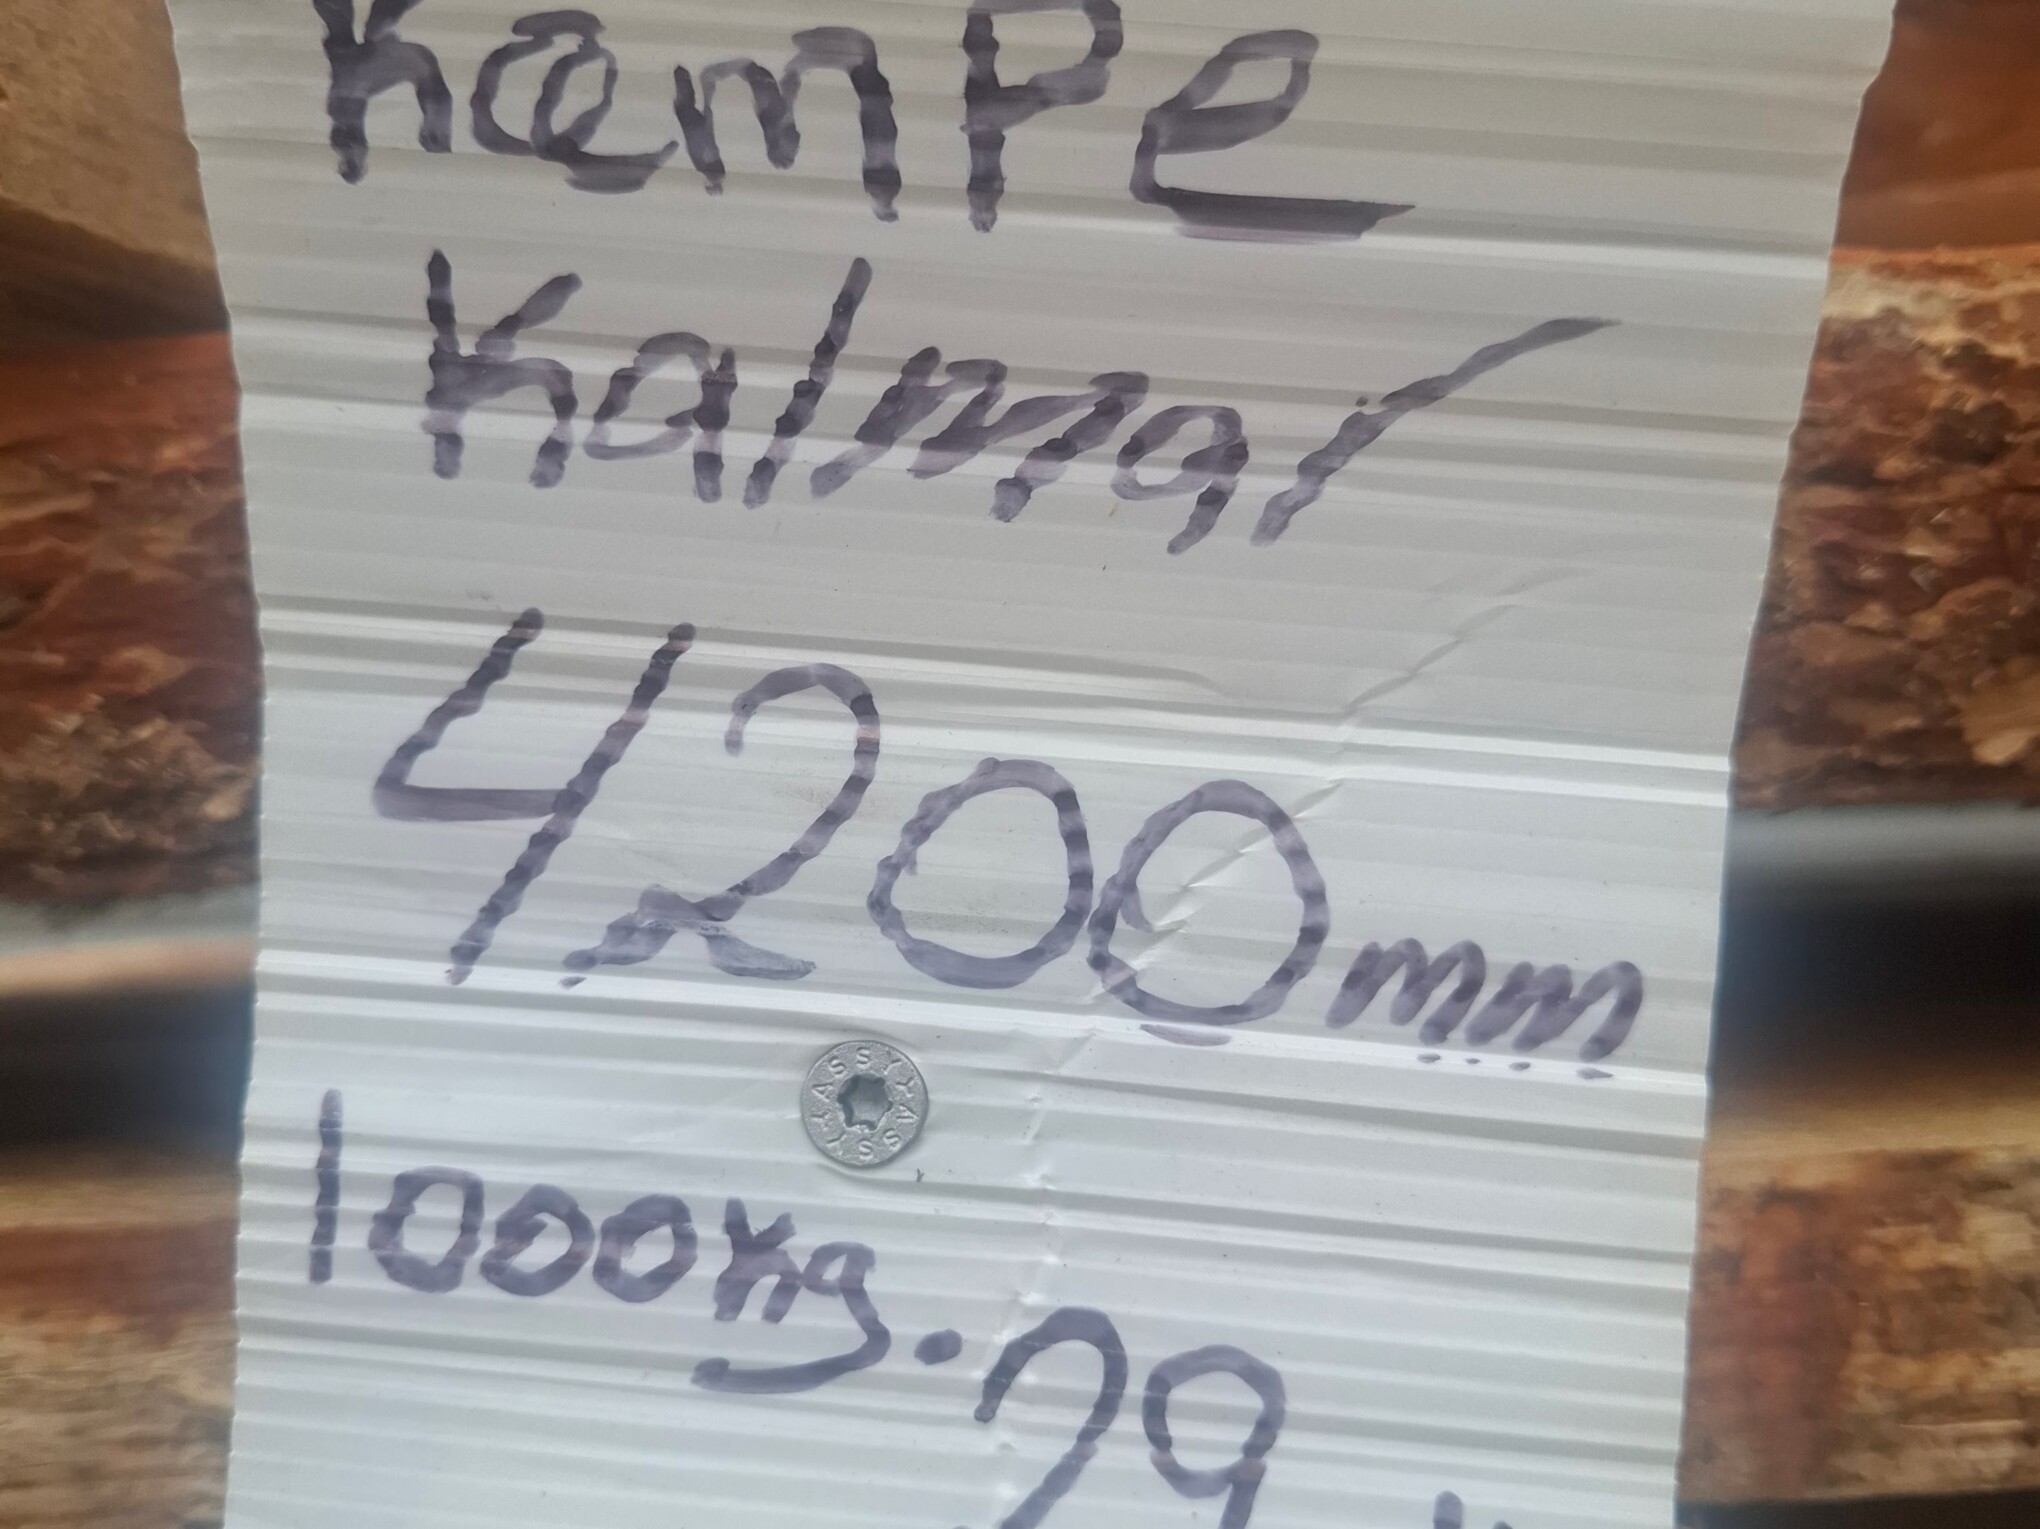 Kæmpe
Kalmar
4200mm
ASSY ASSY
1000kg. 29